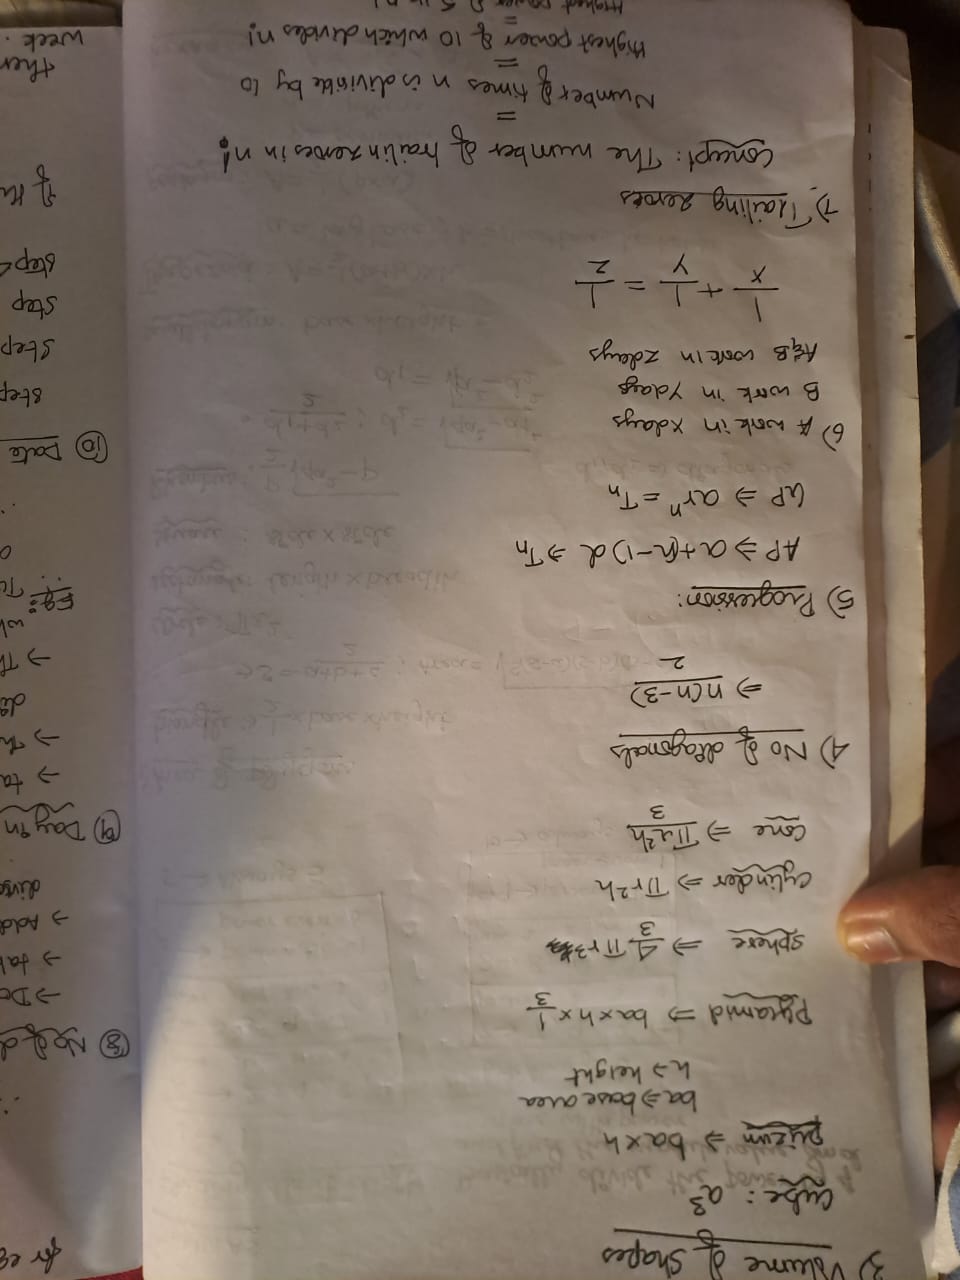 3) Volume of shapes
cube : a³
prism ⇒ ba×h
ba ⇒ base area
h ⇒ height
Pyramid ⇒ ba×h×1/3
sphere ⇒ 4/3 πr³
cylinder ⇒ πr²h
cone ⇒ πr²h/3
4) No of diagonals
⇒ n(n-3)/2
5) Progression:
AP ⇒ a+(n-1)d ⇒ Tn
GP ⇒ arⁿ = Tn
6) A work in x days
B work in y days
A&B work in z days
1/x + 1/y = 1/z
7) Trailing zeroes
Concept: The number of trailin zeroes in n!
=
Number of times n is divisible by 10
=
Highest power of 10 which divides n!
=
Highest power of 5 in n!
for eg
8) No of d
→ Do
→ Add
9) Day in
→ ta
→ Th
→ Th
Eg:
10) Date
step
step
step
step
week.